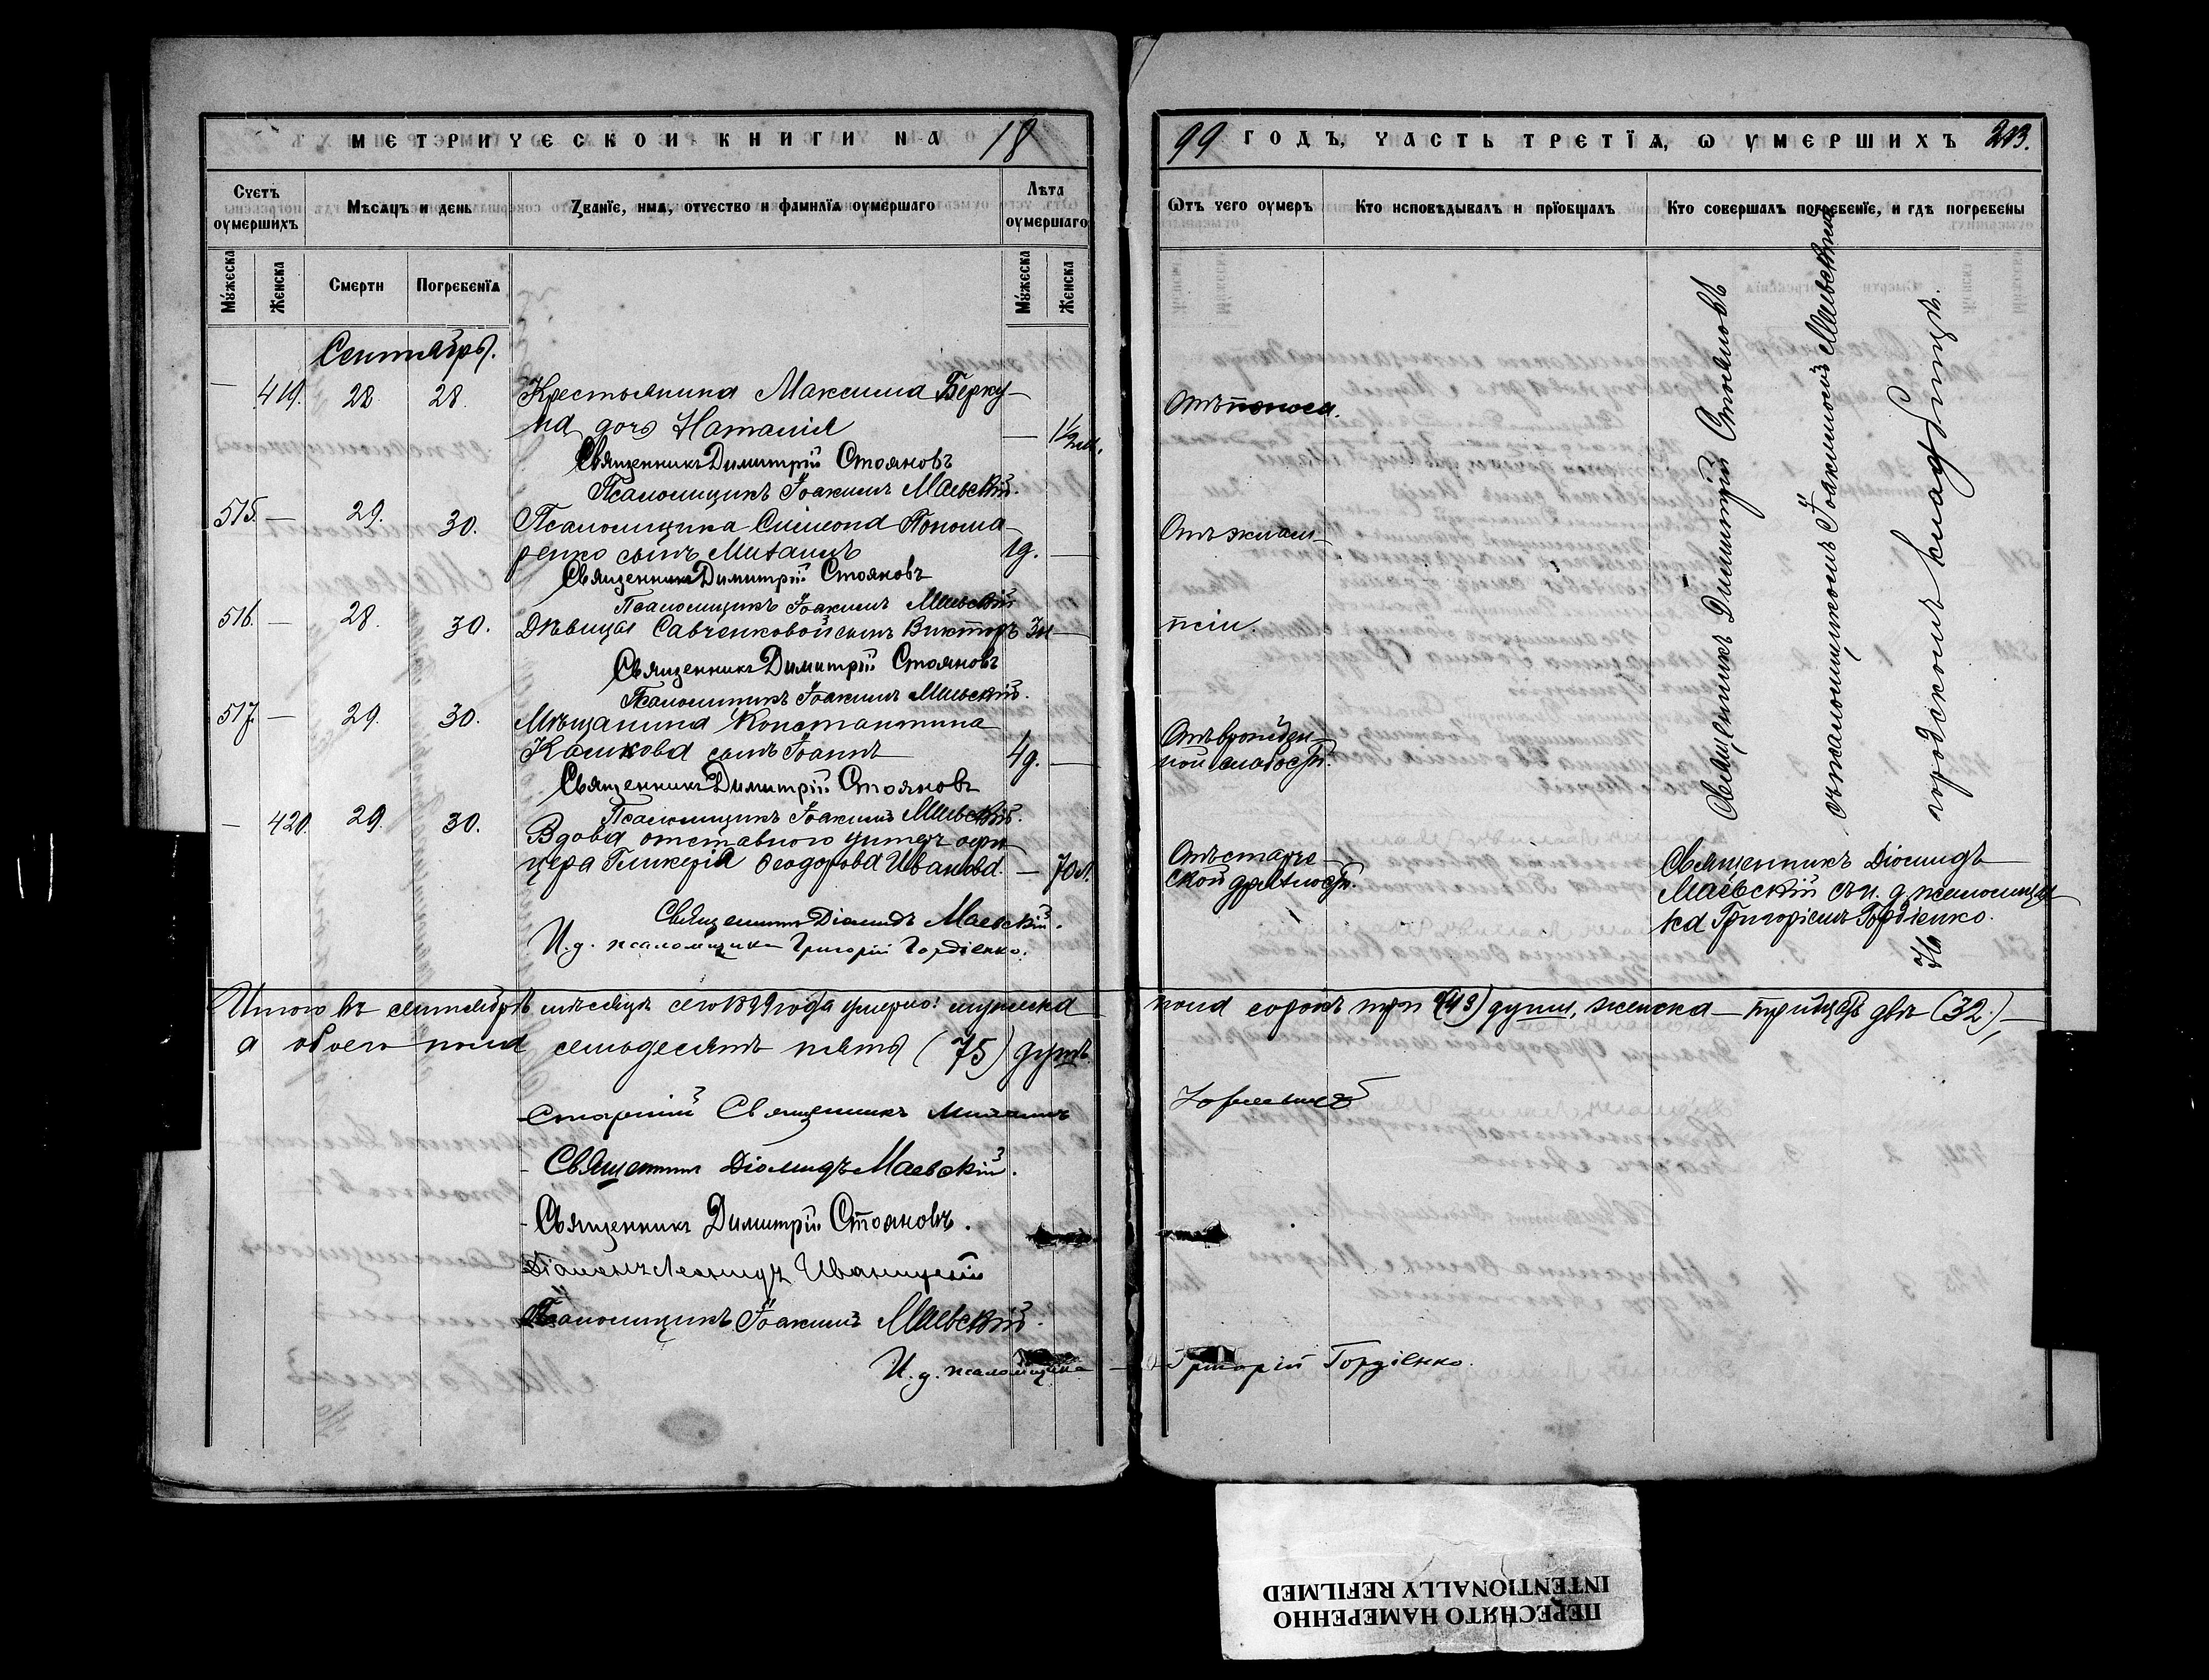 МЕТРИЧЕСКОЙ КНИГИ НА 18
Счетъ оумершихъ
Мѣсяцъ и день
Званїе, имя, отчество и фамилїя оумершаго
Лѣта оумершаго
Мужеска
Женска
Смерти
Погребенїя
Мужеска
Женска
Сентябрь.
— 419. 28 28 Крестьянина Максима Берку-
на дочь Наталія — 1 1/2 м.
Священникъ Димитрій Стояновъ
Псаломщикъ Іоакимъ Маевскій.
515. — 29. 30. Псаломщика Симеона Понома-
ренко сынъ Михаилъ 1 г. —
Священникъ Димитрій Стояновъ
Псаломщикъ Іоакимъ Маевскій
516. — 28. 30. Дѣвицы Савченковой сынъ Викторъ —
Священникъ Димитрій Стояновъ
Псаломщикъ Іоакимъ Маевскій.
517. — 29. 30. Мѣщанина Константина
сынъ Іоаннъ 4 г. —
Священникъ Димитрій Стояновъ
Псаломщикъ Іоакимъ Маевскій.
— 420. 29. 30. Вдова отставного унтеръ офи-
цера Гликерія Ѳеодорова Иванова. — 70 л.
Священникъ Діомидъ Маевскій.
И. д. псаломщика Григорій Гордіенко.
Итого въ сентябрѣ мѣсяцѣ сего 1899 года умерло: мужеска
а обоего пола семьдесятъ пять (75) душъ.
Старшій Священникъ Михаилъ
- Священникъ Діомидъ Маевскій.
- Священникъ Димитрій Стояновъ.
Діаконъ Леонидъ Иваницкій
Псаломщикъ Іоакимъ Маевскій.
И. д. псаломщика —
99 ГОДЪ, ЧАСТЬ ТРЕТЇЯ, Ѡ УМЕРШИХЪ 213.
Ѡтъ чего оумеръ
Кто исповѣдывалъ и прїобщалъ
Кто совершалъ погребенїе, и гдѣ погребены
Отъ поноса.
Отъ эклам-
псіи.
Отъ врожден-
ной слабости.
Отъ старче-
ской дряхлости.
Священникъ Димитрій Стояновъ
съ псаломщикомъ Іоакимомъ Маевскимъ
На городскомъ кладбищѣ.
Священникъ Діомидъ
Маевскій съ и. д. псаломщи-
ка Григоріемъ Гордіенко.
пола сорокъ три (43) души, женска — тридцать двѣ (32),—
Григорій Гордіенко.
ПЕРЕСНЯТО НАМЕРЕННО
INTENTIONALLY REFILMED